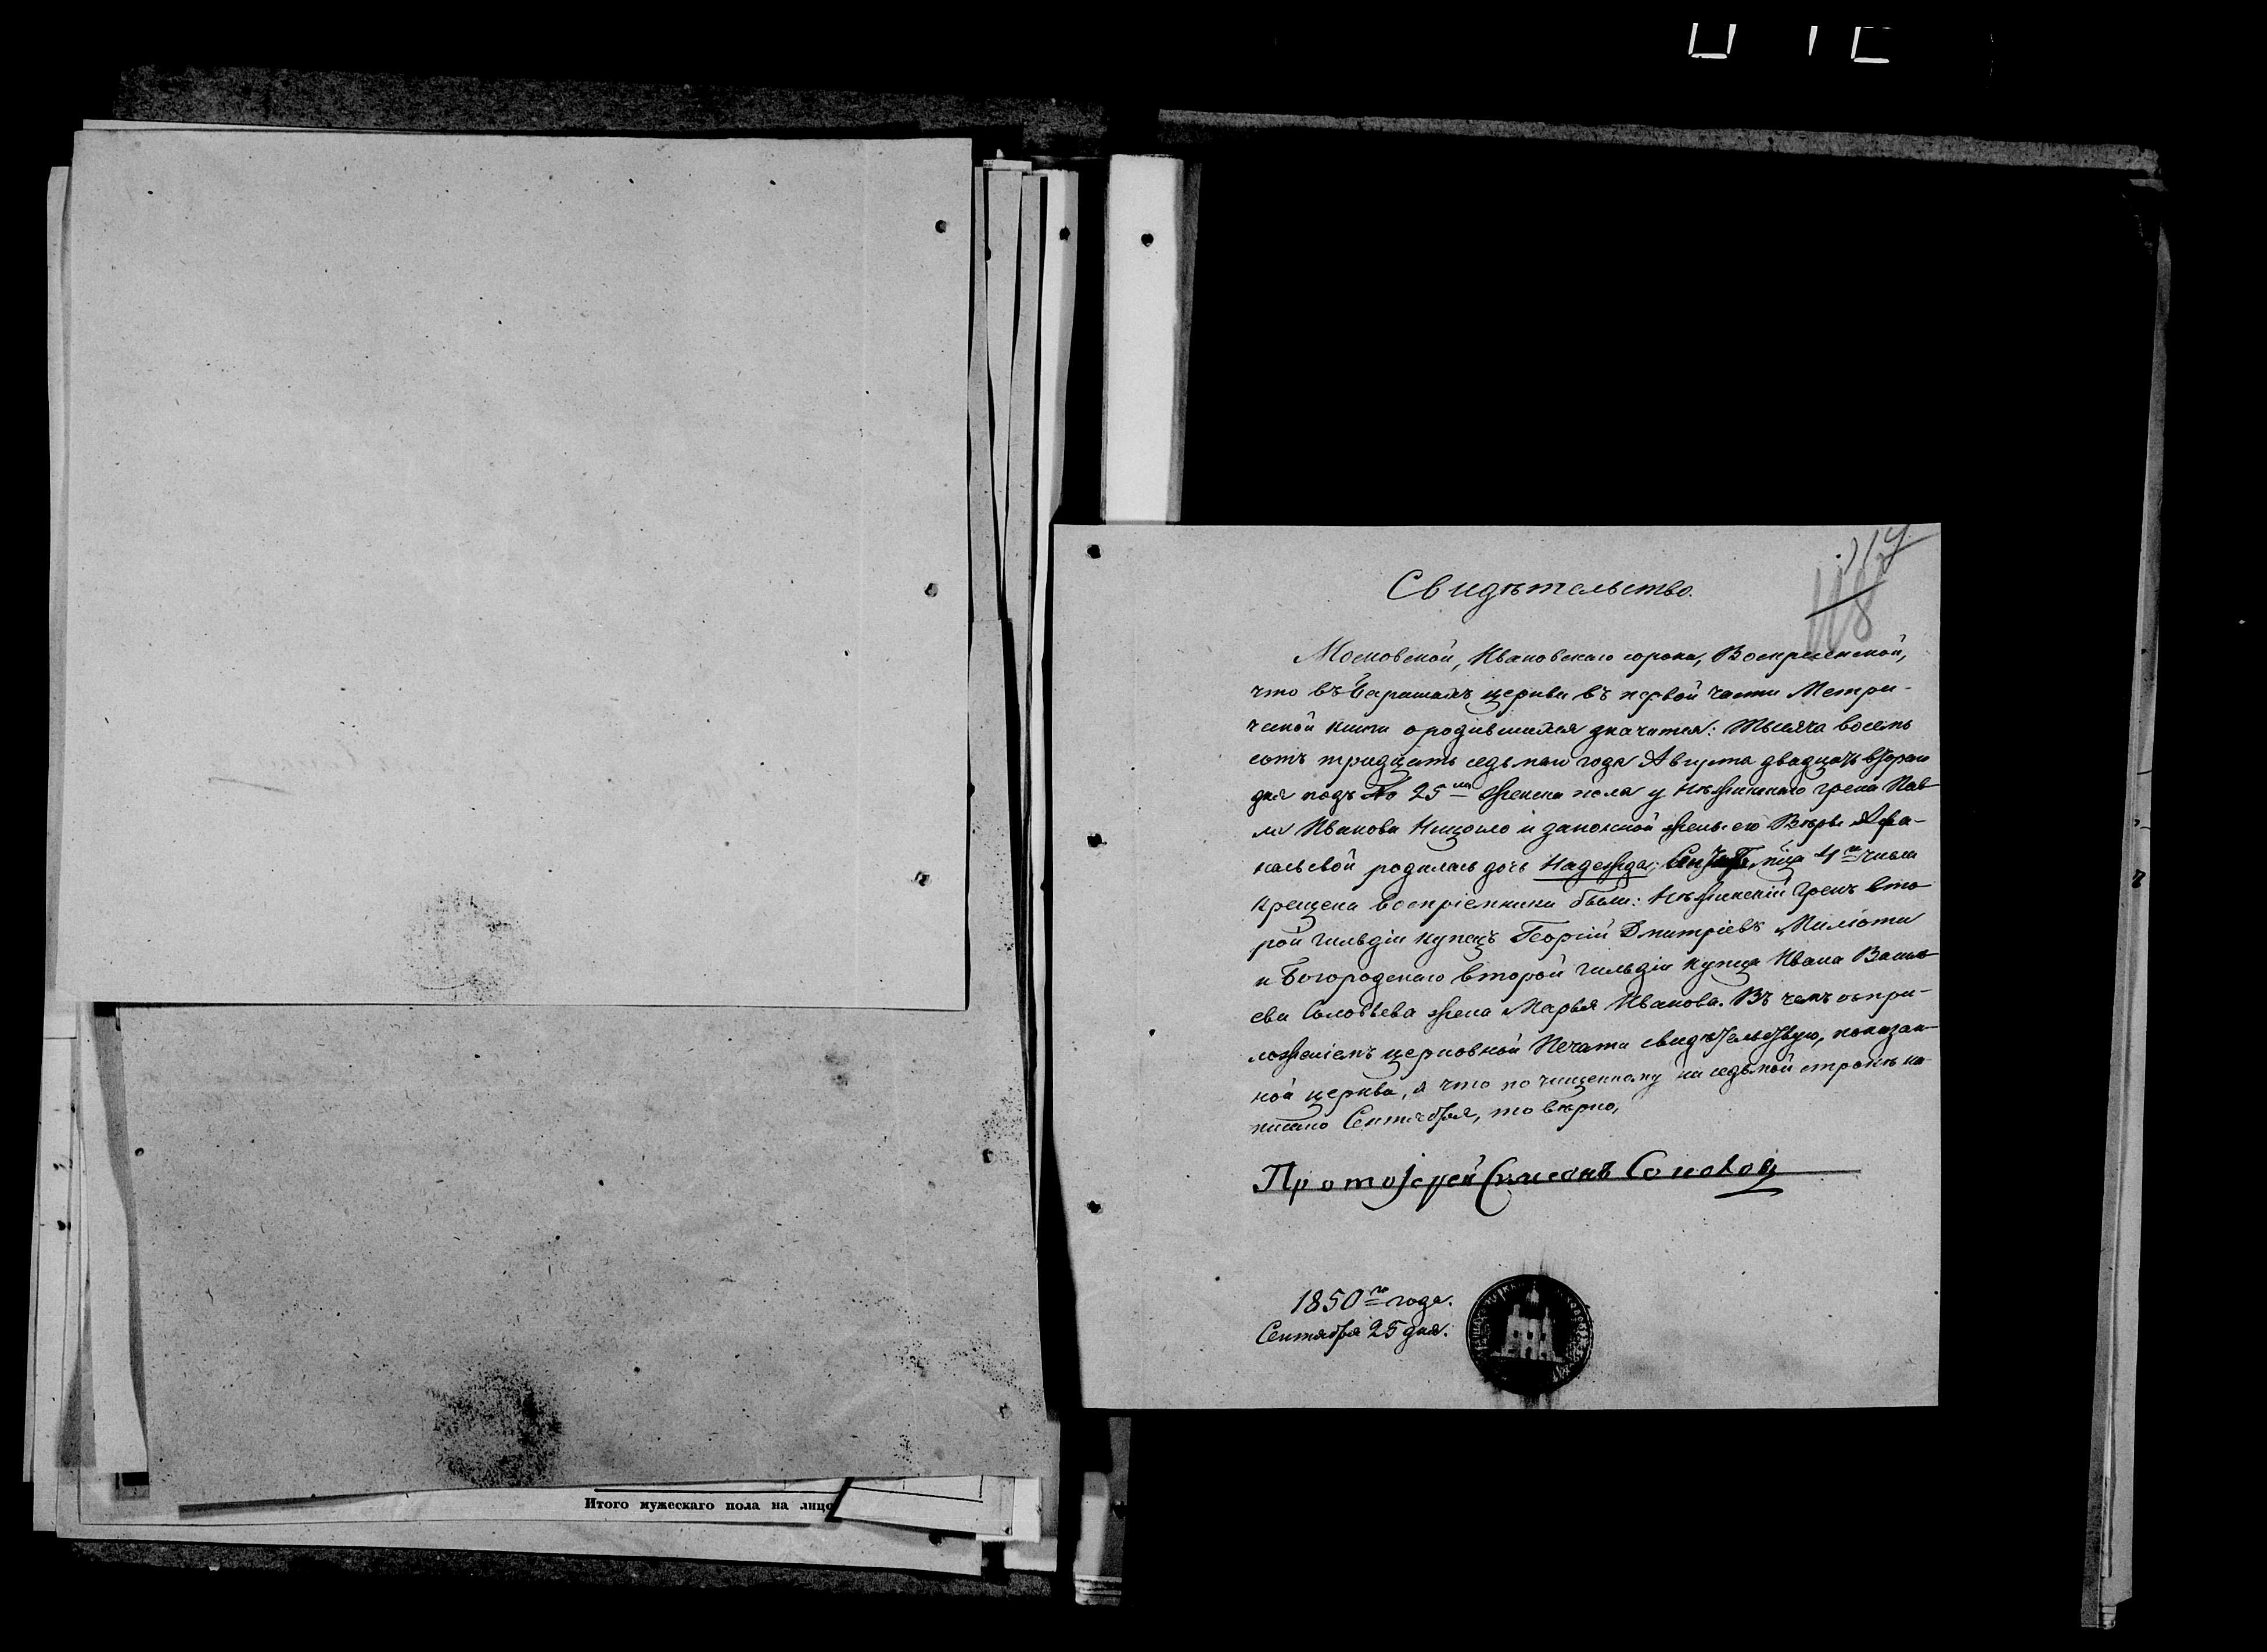 117
118
Свидѣтельство.
Московской, Ивановскаго сорока, Воскресенской,
что въ Барашахъ, церкви въ первой части Метри-
ческой книги о родившихся значится: Тысяча восемь
сотъ тридцать седьмаго года Августа двадцать втораго
дня подъ № 25мъ женска пола у Нѣжинскаго грека Пав-
ла Иванова Ницоло и законной жены его Вѣры Афа-
насьевой родилась дочь Надежда, Сентября мца 4го числа
крещена воспріемники были: Нѣжинскій грекъ вто
рой гильдіи купецъ Георгій Дмитріевъ Миліоти
и Богородскаго второй гильдіи купца Ивана Василь
ева Соловьева жена Марья Иванова. Въ чемъ съ при-
ложеніемъ церковной Печати свидѣтельствую, показан-
ной церкви, а что по чищенному на седьмой строкѣ на
писано Сентября, то вѣрно,
Протоіерей Симеонъ Соколовъ
1850го года.
Сентября 25 дня.
Итого мужескаго пола на лицо